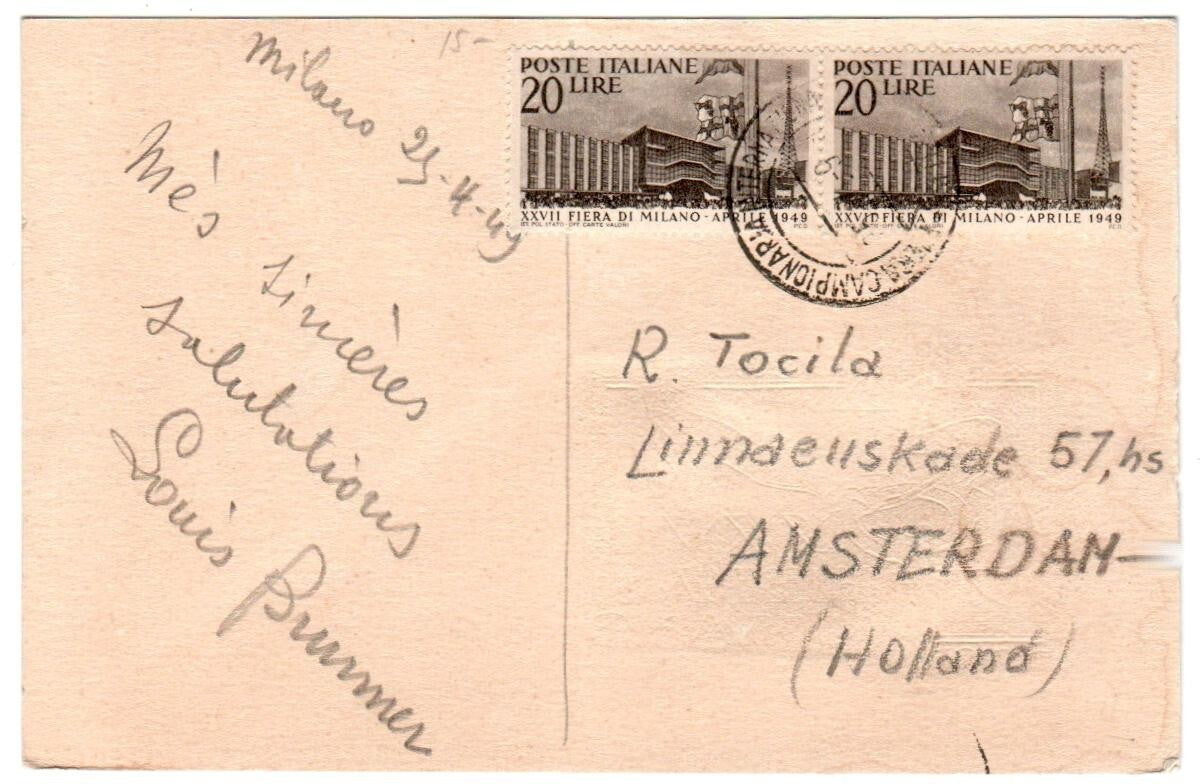 15-
Milano 25-4-49
Més
sinières
salutations
Louis Brunner
POSTE ITALIANE
20 LIRE
XXVII FIERA DI MILANO - APRILE 1949
IST. POL. STATO - OFF. CARTE VALORI
POSTE ITALIANE
20 LIRE
XXVII FIERA DI MILANO - APRILE 1949
IST. POL. STATO - OFF. CARTE VALORI
CAMPIONARIA
R. Tocila
Linnaeuskade 57, hs
AMSTERDAN
(Holland)